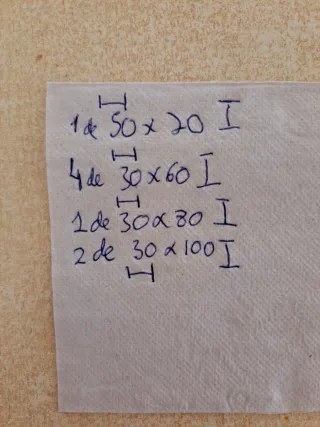 1 de 50 x 20
4 de 30 x 60
1 de 30 x 80
2 de 30 x 100